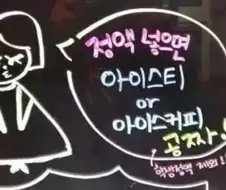 정액 넣으면
아이스티
or
아이스커피
공짜
학생정액 제외!!